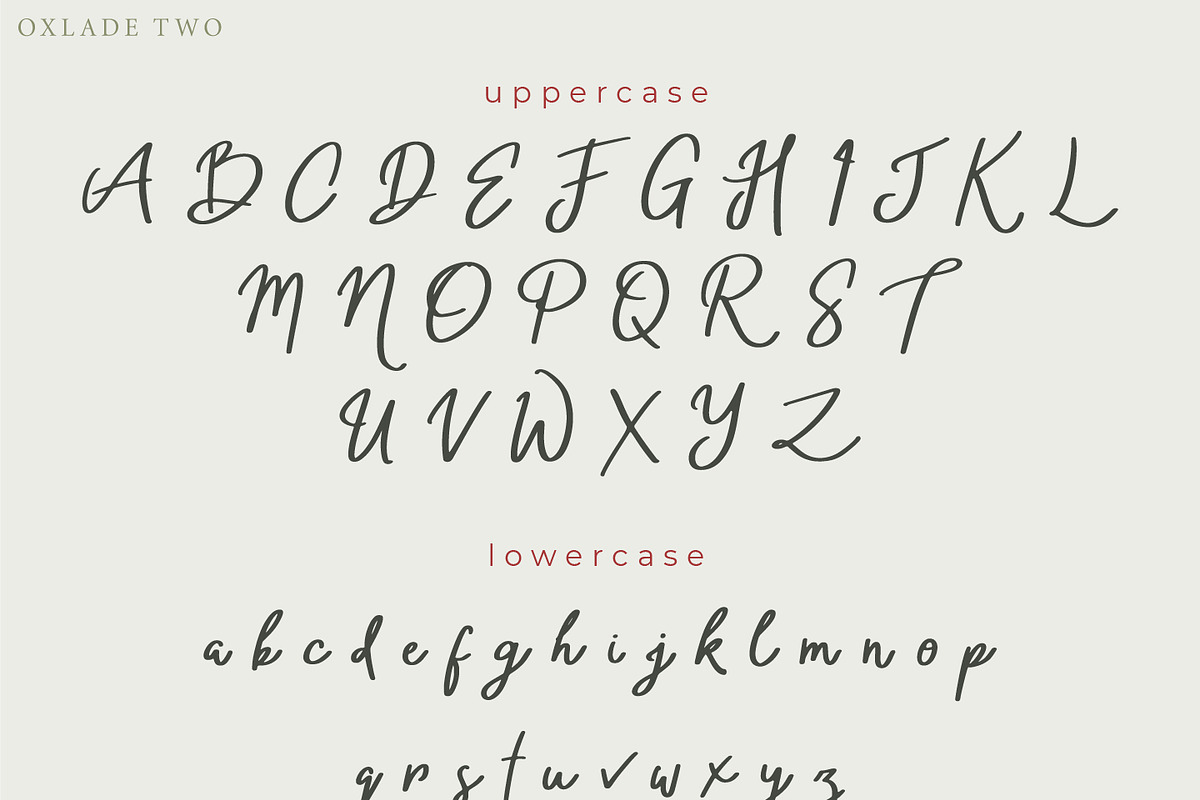 OXLADE TWO
uppercase
A B C D E F G H I J K L
M N O P Q R S T
U V W X Y Z
lowercase
a b c d e f g h i j k l m n o p
q r s t u v w x y z